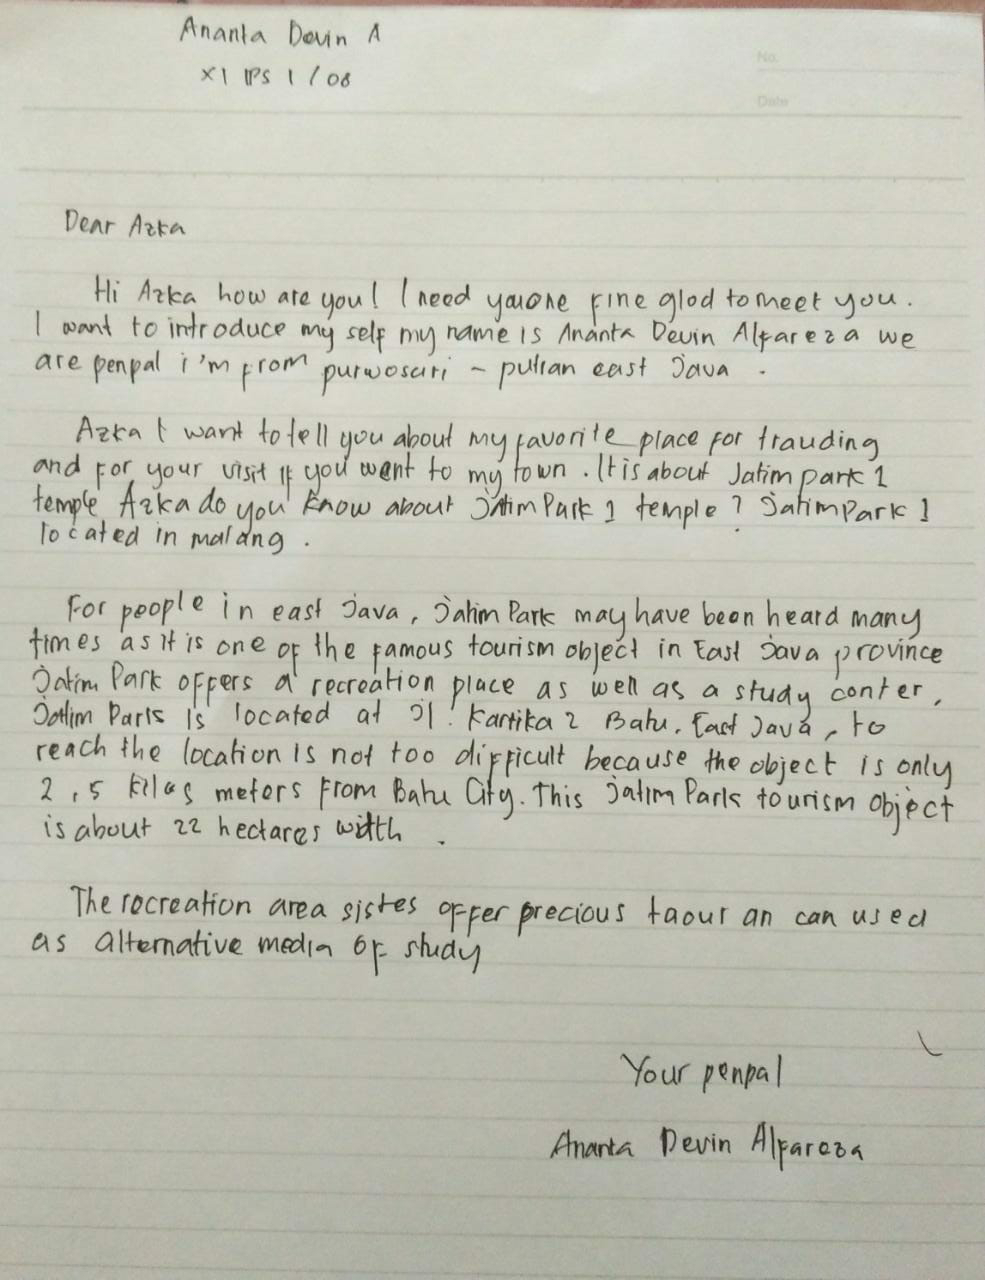 Ananta Devin A
XI IPS 1 / 08
No.
Date
Dear Azka
Hi Azka how are you! I need you are fine glod to meet you.
I want to introduce my self my name is Ananta Devin Alfareza we
are penpal i'm from purwosari - east Java .
Azka I want to tell you about my favorite place for
and for your visit if you want to my town . It is about Jatim park 1
temple Azka do you know about Jatim Park 1 temple ? Jatim Park 1
located in malang .
For people in east Java , Jatim Park may have been heard many
times as it is one of the famous tourism object in East Java province
Jatim Park offers a recreation place as well as a study conter ,
Jatim Park is located at Jl . Kartika 2 Batu , East Java , to
reach the location is not too difficult because the object is only
2 , 5 kilos meters from Batu City . This Jatim Park tourism object
is about 22 hectares width .
The recreation area sistes offer precious taour an can used
as alternative media of study
Your penpal
Ananta Devin Alfareza